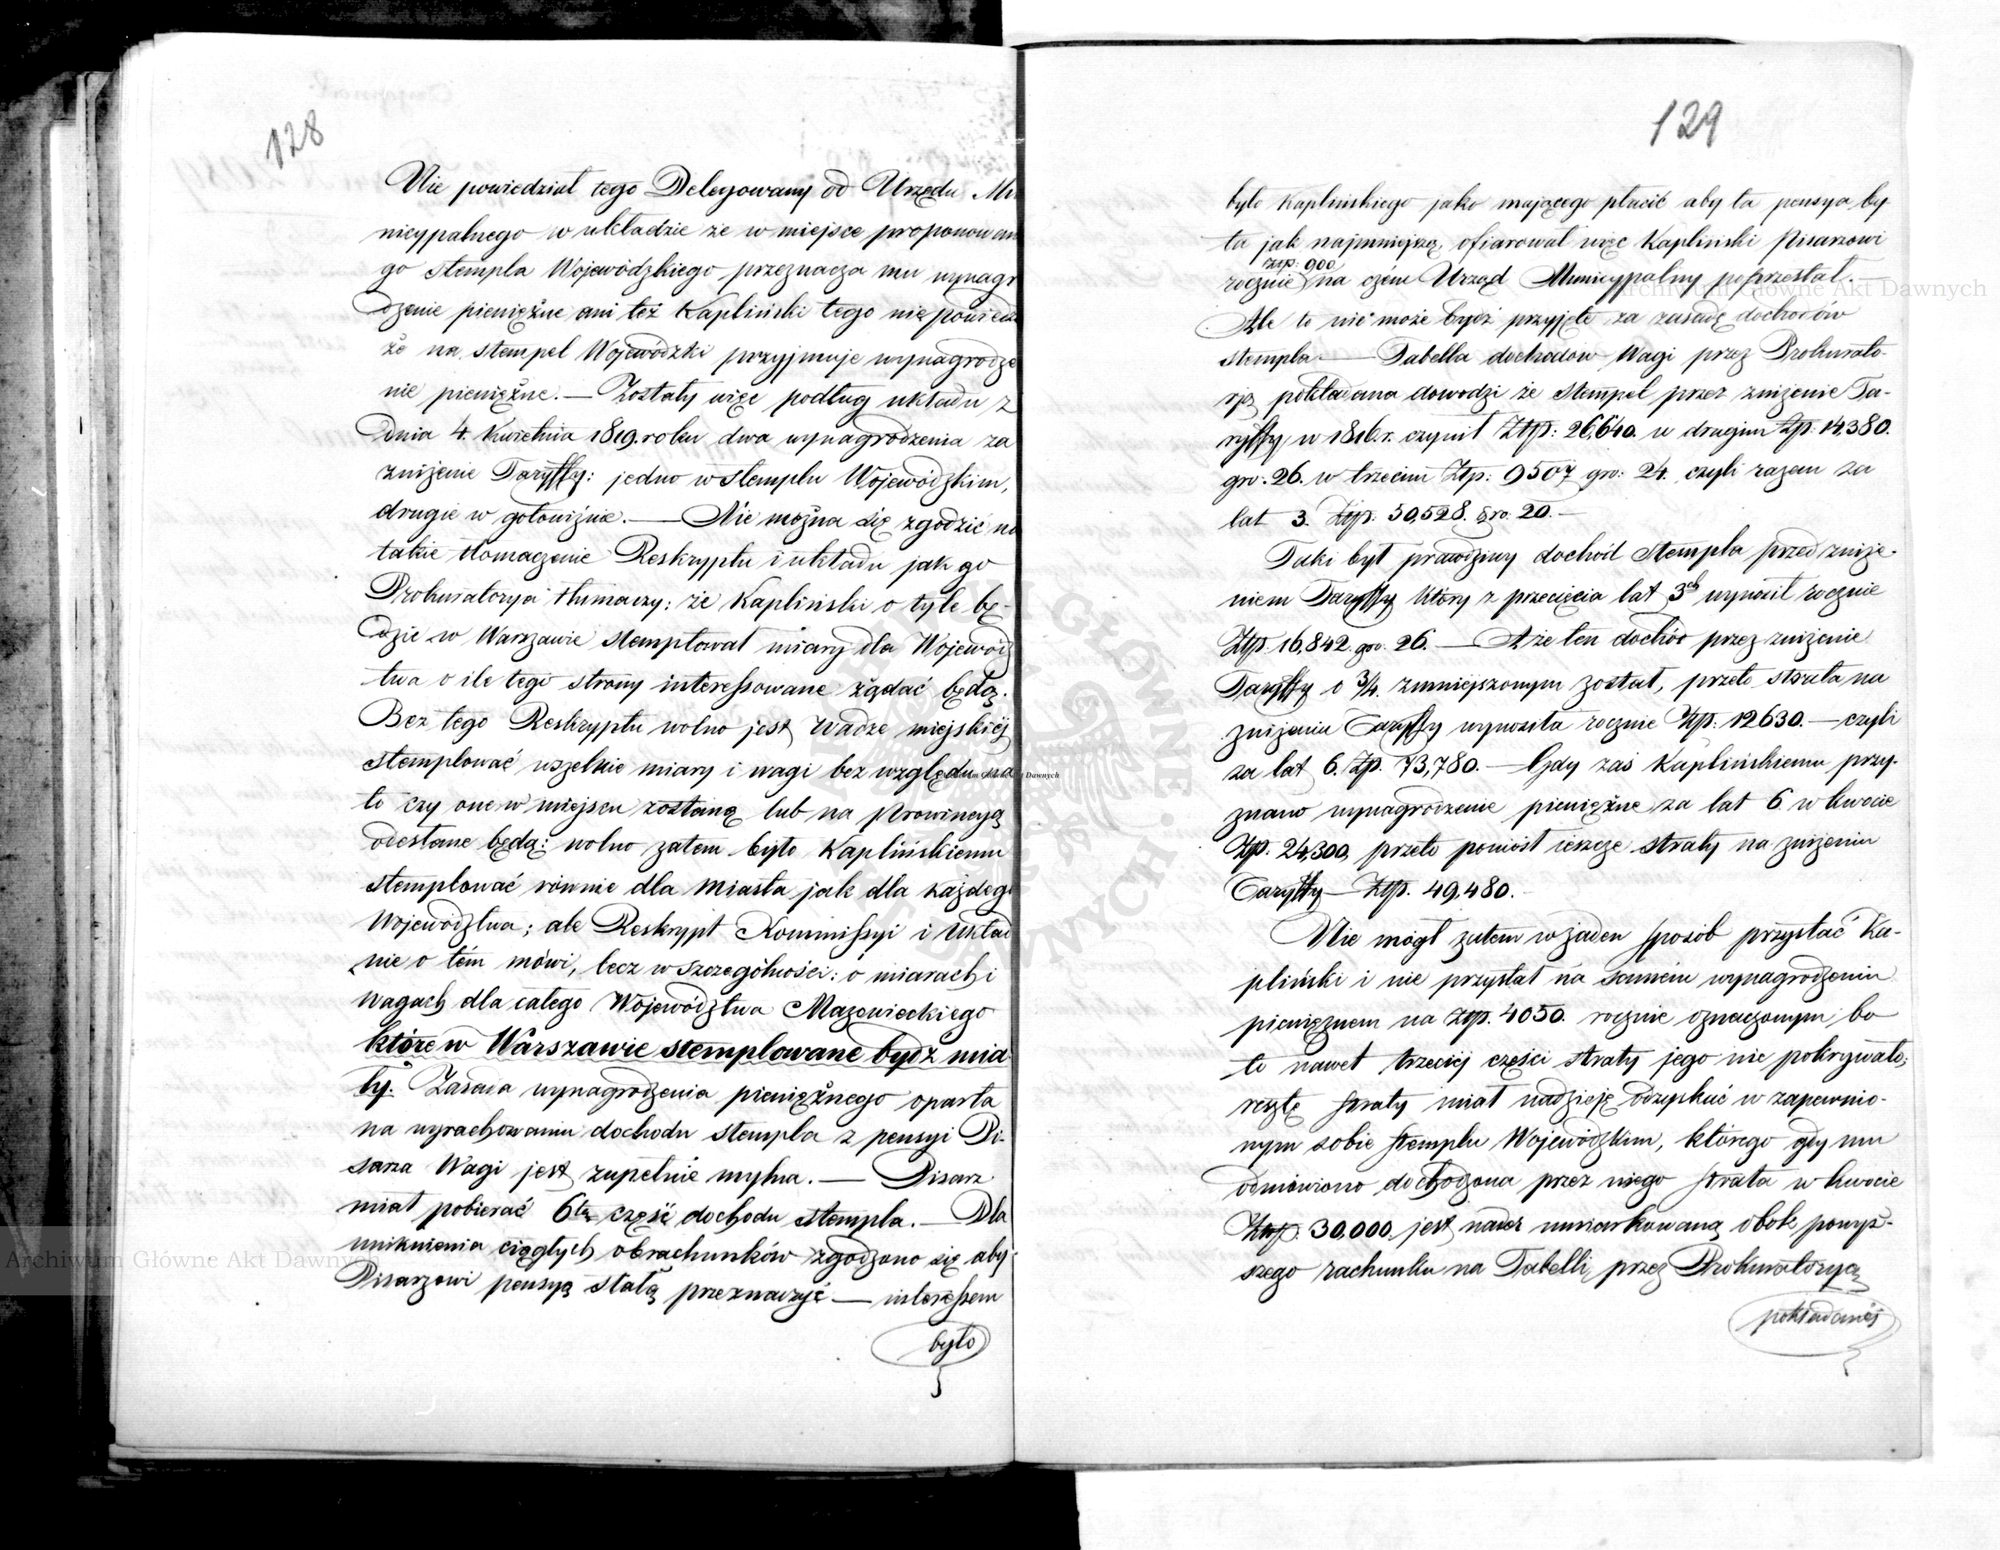 128
Nie powiedział tego Delegowany od Urzędu Mu
nicypalnego w układzie że w miejsce proponowan
go stempla Wojewódzkiego przeznacza mu wynagr
dzenie pieniężne ani też Kapliński tego nie powied
że na stempel Wojewódzki przyjmuje wynagrodze
nie pieniężne. — Zostały więc podług układu z
Dnia 4. Kwietnia 1819. roku dwa wynagrodzenia za
zniżenie Taryffy: jedno w stemplu Wojewódzkim,
drugie w gotowiźnie. — Nie można się zgodzić na
takie tłomaczenie Reskryptu i układu jak go
Prokuratorya tłumaczy: że Kapliński o tyle bę-
dzie w Warszawie stemplował miary dla Wojewódz
twa o ile tego strony interessowane żądać będą.
Bez tego Reskryptu wolno jest Wadze miejskiéj
stemplować wszelkie miary i wagi bez względu na
to czy one w miejscu zostaną lub na Prowincyą
odesłane będą: wolno zatem było Kaplińskiemu
stemplować równie dla Miasta jak dla każdego
Województwa; ale Reskrypt Kommissyi i Układ
nie o tém mówi, lecz w szczególności: o miarach i
wagach dla całego Województwa Mazowieckiego
które w Warszawie stemplowane bydź mia
ły. Zasada wynagrodzenia pieniężnego oparta
na wyrachowaniu dochodu stempla z pensyi Pi-
sarza Wagi jest zupełnie mylna. — Pisarz
miał pobierać 6tą część dochodu stempla. — Dla
uniknienia ciągłych obrachunków zgodzono się aby
Pisarzowi pensyą stałą przeznaczyć — interessem
było
129
było Kaplińskiego jako mającego płacić aby ta pensya by
ła jak najmniejszą, ofiarował więc Kapliński Pisarzowi
złp: 900
rocznie na czém Urząd Municypalny poprzestał. —
Ale to nie może bydź przyjęte za zasadę dochodów
stempla — Tabella dochodów Wagi przez Prokurato-
rją pokładana dowodzi że stempel przez zniżenie Ta-
ryffy w 1816. r. czynił Złp: 26,640. w drugim Złp: 14,380.
gro: 26. w trzecim Złp: 9507 gro: 24. czyli razem za
lat 3. Złp: 50,528. gro. 20. —
Taki był prawdziwy dochód stempla przed zniże-
niem Taryffy który z przecięcia lat 3ch wynosił rocznie
Złp. 16,842. gro. 26. — A że ten dochód przez zniżenie
Taryffy o 3/4. zmniejszonym został, przeto strata na
zniżeniu Taryffy wynosiła rocznie Złp: 12630. — czyli
za lat 6. Złp. 73,780. — Gdy zaś Kaplińskiemu przy-
znano wynagrodzenie pieniężne za lat 6 w kwocie
Złp. 24,300, przeto poniósł ieszcze straty na zniżeniu
Taryffy — Złp. 49,480. —
Nie mógł zatem w żaden sposób przystać Ka-
pliński i nie przystał na samém wynagrodzeniu
pieniężnem na Złp. 4050. rocznie oznaczonym, bo
to nawet trzeciej części straty jego nie pokrywało;
resztę straty miał nadzieję odzyskać w zapewnio-
nym sobie stemplu Wojewódzkim, którego gdy mu
odmówiono dochodzona przez niego strata w kwocie
Złp. 30,000. jest nader umiarkowaną obok powyż-
szego rachunku na Tabelli przez Prokuratoryą
pokładanéj
Archiwum Główne Akt Dawnych
Archiwum Główne Akt Dawnych